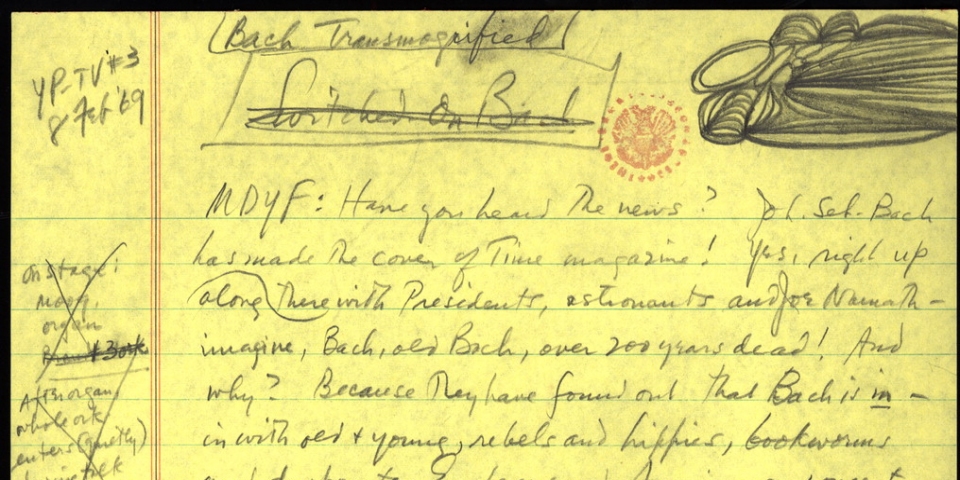 Bach Transmogrified
Switched-On Bach
YP-TV #3
8 Feb '69
MDYF: Have you heard the news? Joh. Seb. Bach
has made the cover of Time magazine! Yes, right up
along there with Presidents, astronauts and Joe Namath –
imagine, Bach, old Bach, over 200 years dead! And
why? Because they have found out that Bach is in –
in with old + young, rebels and hippies, bookworms
on stage:
moog,
organ
After organ,
whole ork
enters (quietly)